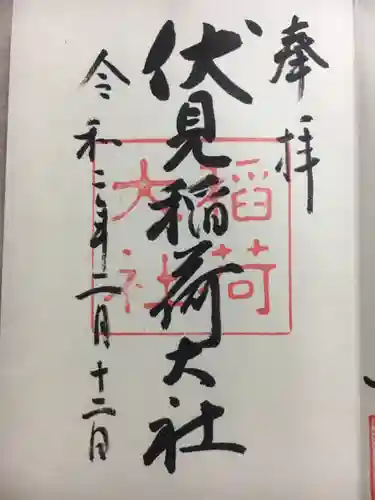 奉拝
伏見稲荷大社
令和二年二月十二日
稲荷
大社